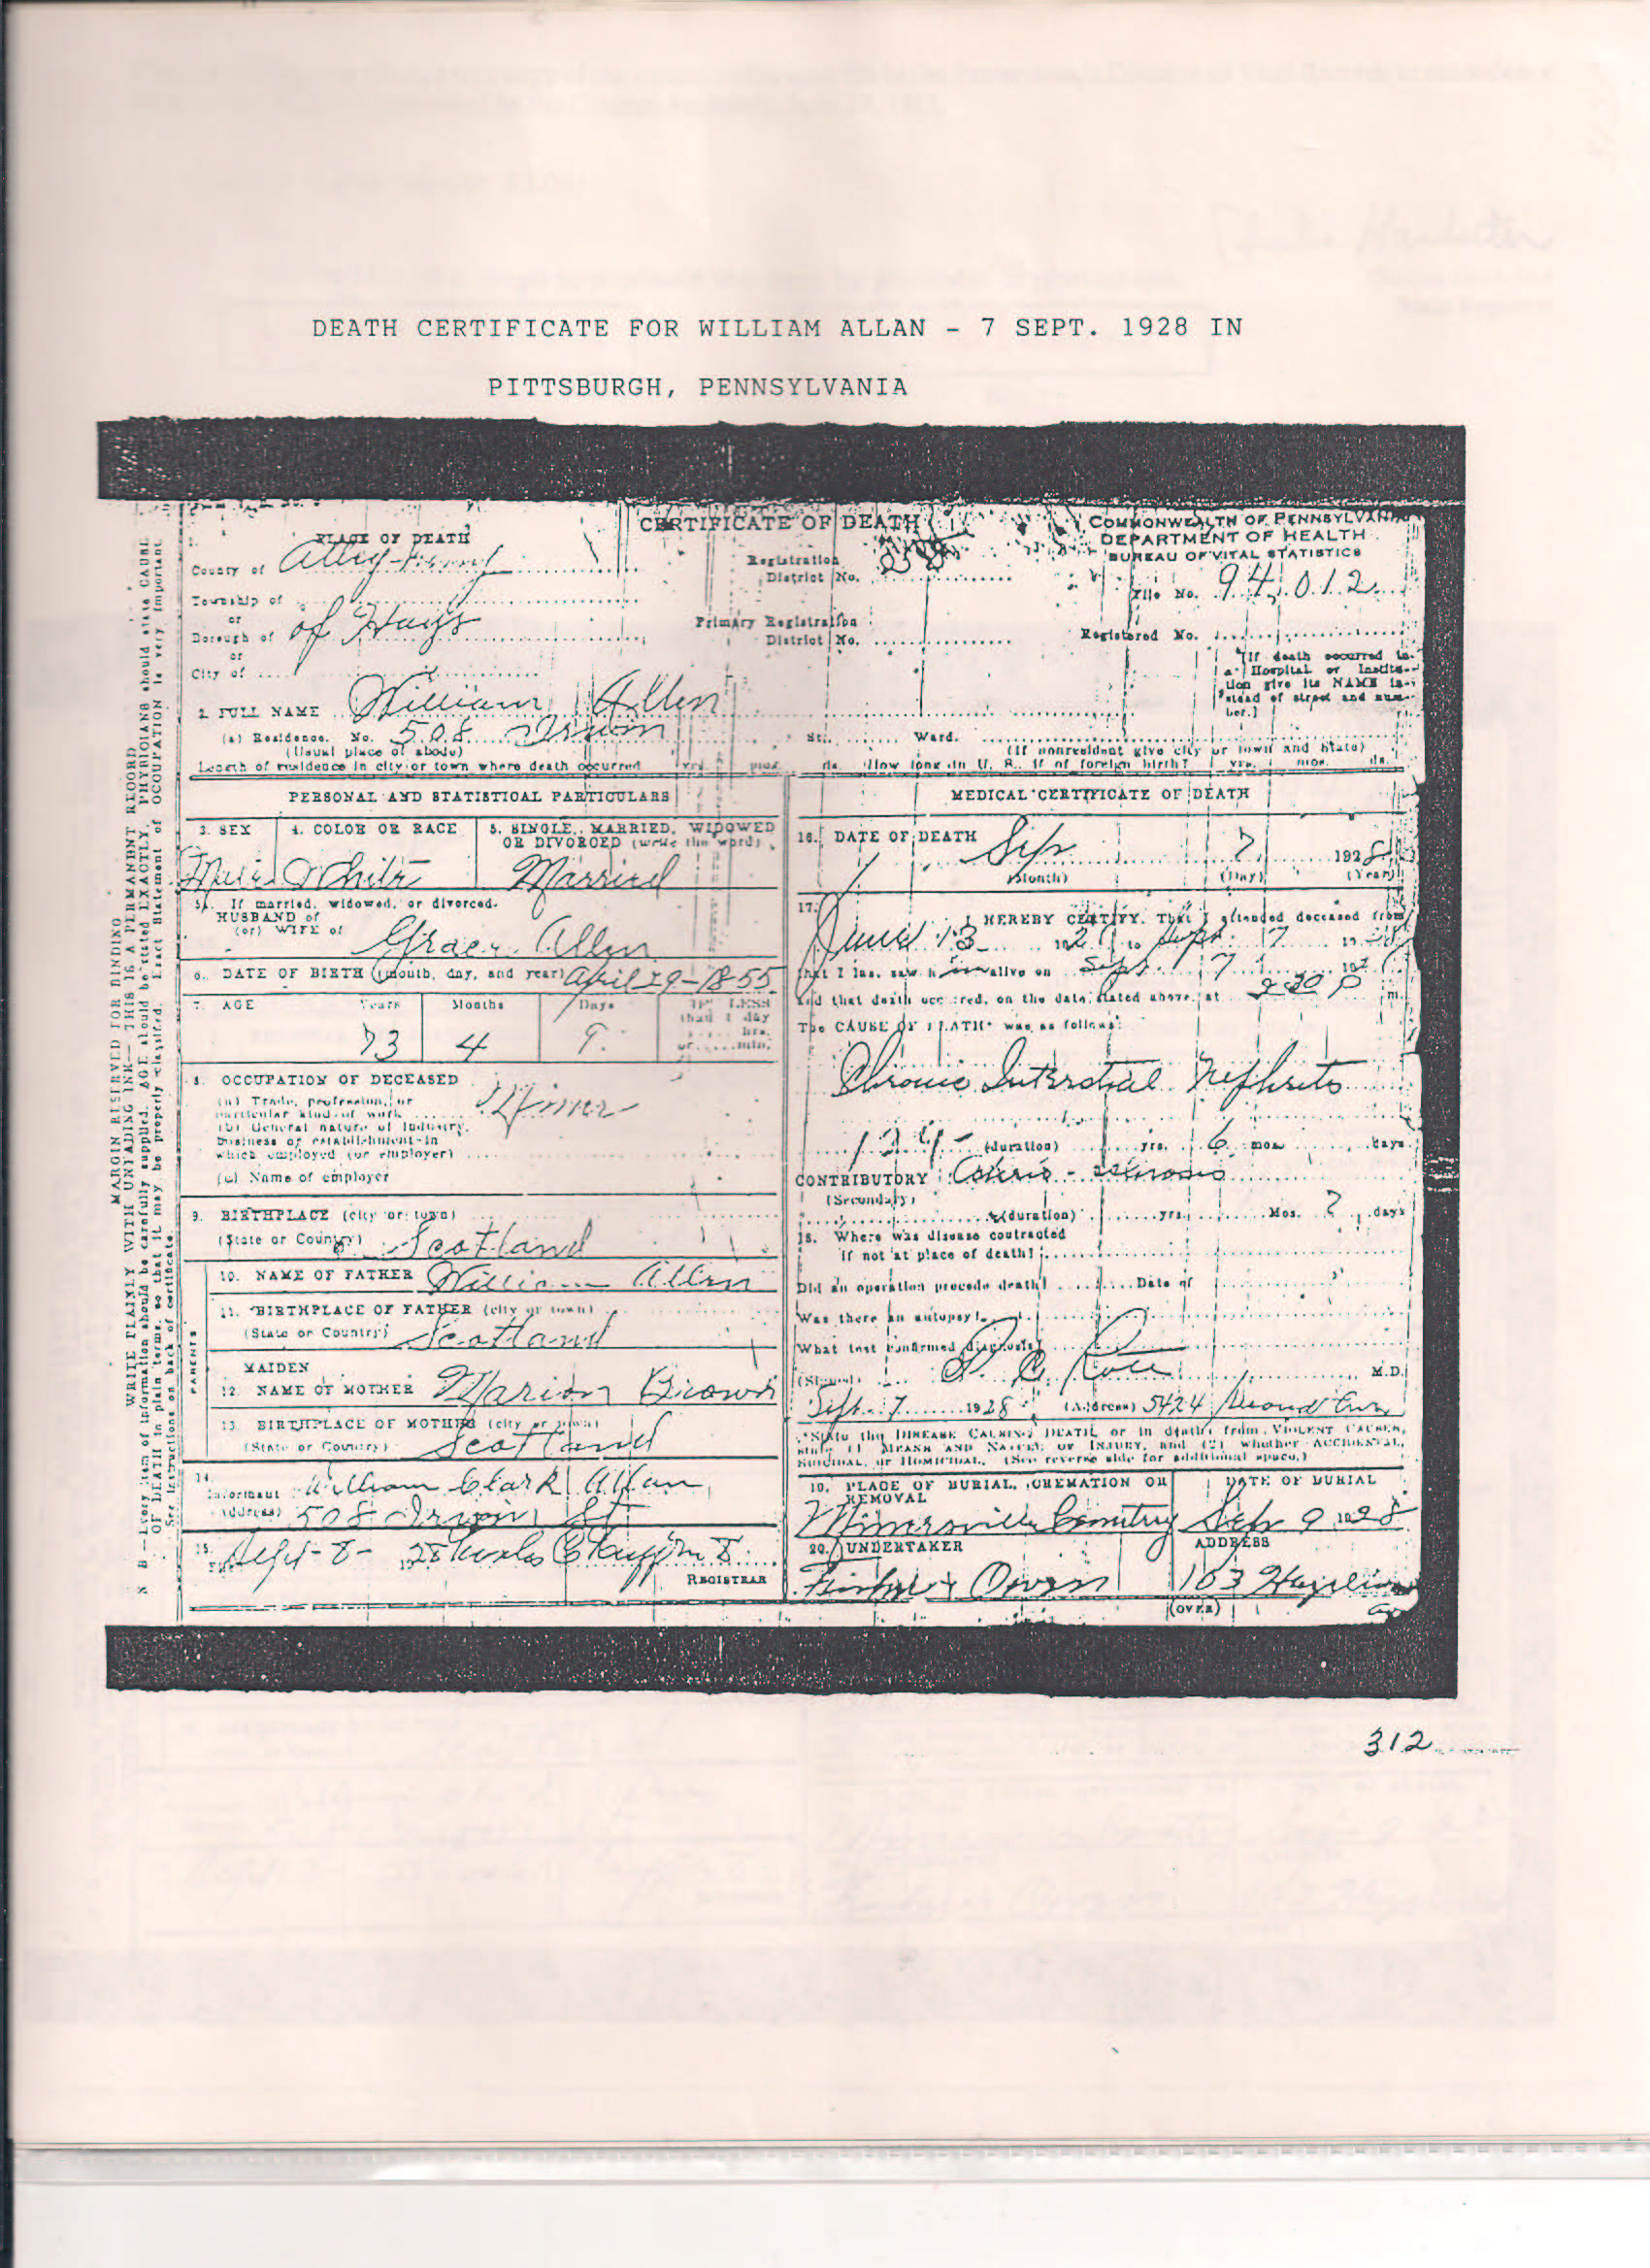 DEATH CERTIFICATE FOR WILLIAM ALLAN - 7 SEPT. 1928 IN
PITTSBURGH, PENNSYLVANIA
CERTIFICATE OF DEATH
COMMONWEALTH OF PENNSYLVANIA
DEPARTMENT OF HEALTH
BUREAU OF VITAL STATISTICS
1. PLACE OF DEATH
County of Allegheny
Registration
District No.
File No. 94012
Township of
or
Borough of of Hays
Primary Registration
District No.
Registered No.
or
City of
(If death occurred in
a Hospital or Institu-
tion give its NAME in-
stead of street and num-
ber.)
2. FULL NAME William Allen
(a) Residence. No. 508 Irwin St. Ward.
(Usual place of abode)
(If nonresident give city or town and State)
Length of residence in city or town where death occurred yrs. mos. ds. How long in U. S., if of foreign birth? yrs. mos. ds.
PERSONAL AND STATISTICAL PARTICULARS
3. SEX
4. COLOR OR RACE
5. SINGLE, MARRIED, WIDOWED
OR DIVORCED (write the word)
Male White Married
5a. If married, widowed, or divorced
HUSBAND of
(or) WIFE of
Grace Allen
6. DATE OF BIRTH (month, day, and year) April 29-1855
7. AGE Years Months Days IF LESS
than 1 day
hrs.
or min.
73 4 9
8. OCCUPATION OF DECEASED
(a) Trade, profession, or
particular kind of work
(b) General nature of industry,
business or establishment in
which employed (or employer)
(c) Name of employer
9. BIRTHPLACE (city or town)
(State or Country) Scotland
10. NAME OF FATHER William Allen
11. BIRTHPLACE OF FATHER (city or town)
(State or Country) Scotland
MAIDEN
12. NAME OF MOTHER Marion Brown
13. BIRTHPLACE OF MOTHER (city or town)
(State or Country) Scotland
PARENTS
14. Informant William Clark Allan
(Address) 508 Irwin St
15. Sept-8- 28
REGISTRAR
MEDICAL CERTIFICATE OF DEATH
16. DATE OF DEATH Sep 7 1928
(Month) (Day) (Year)
17. I HEREBY CERTIFY, That I attended deceased from
June 13 to Sept. 7
that I last saw him alive on Sept. 7
and that death occurred, on the date stated above, at 2 30 P m.
The CAUSE OF DEATH* was as follows:
Chronic Interstitial Nephritis
(duration) yrs. 6 mos. days
CONTRIBUTORY
(Secondary)
(duration) yrs. Mos. days
18. Where was disease contracted
if not at place of death?
Did an operation precede death? Date of
Was there an autopsy?
What test confirmed diagnosis?
(Signed) M.D.
Sept. 7 1928 (Address) 5424 Second Ave
*State the DISEASE CAUSING DEATH, or in deaths from VIOLENT CAUSES,
state (1) MEANS AND NATURE OF INJURY, and (2) whether ACCIDENTAL,
SUICIDAL, or HOMICIDAL. (See reverse side for additional space.)
19. PLACE OF BURIAL, CREMATION OR
REMOVAL
DATE OF BURIAL
Minersville Cemetery Sep 9 1928
20. UNDERTAKER ADDRESS
Owen 103
(OVER)
MARGIN RESERVED FOR BINDING
WRITE PLAINLY WITH UNFADING INK—THIS IS A PERMANENT RECORD
N. B.—Every item of information should be carefully supplied. AGE should be stated EXACTLY. PHYSICIANS should state CAUSE
OF DEATH in plain terms, so that it may be properly classified. Exact Statement of OCCUPATION is very important.
See instructions on back of certificate.
312